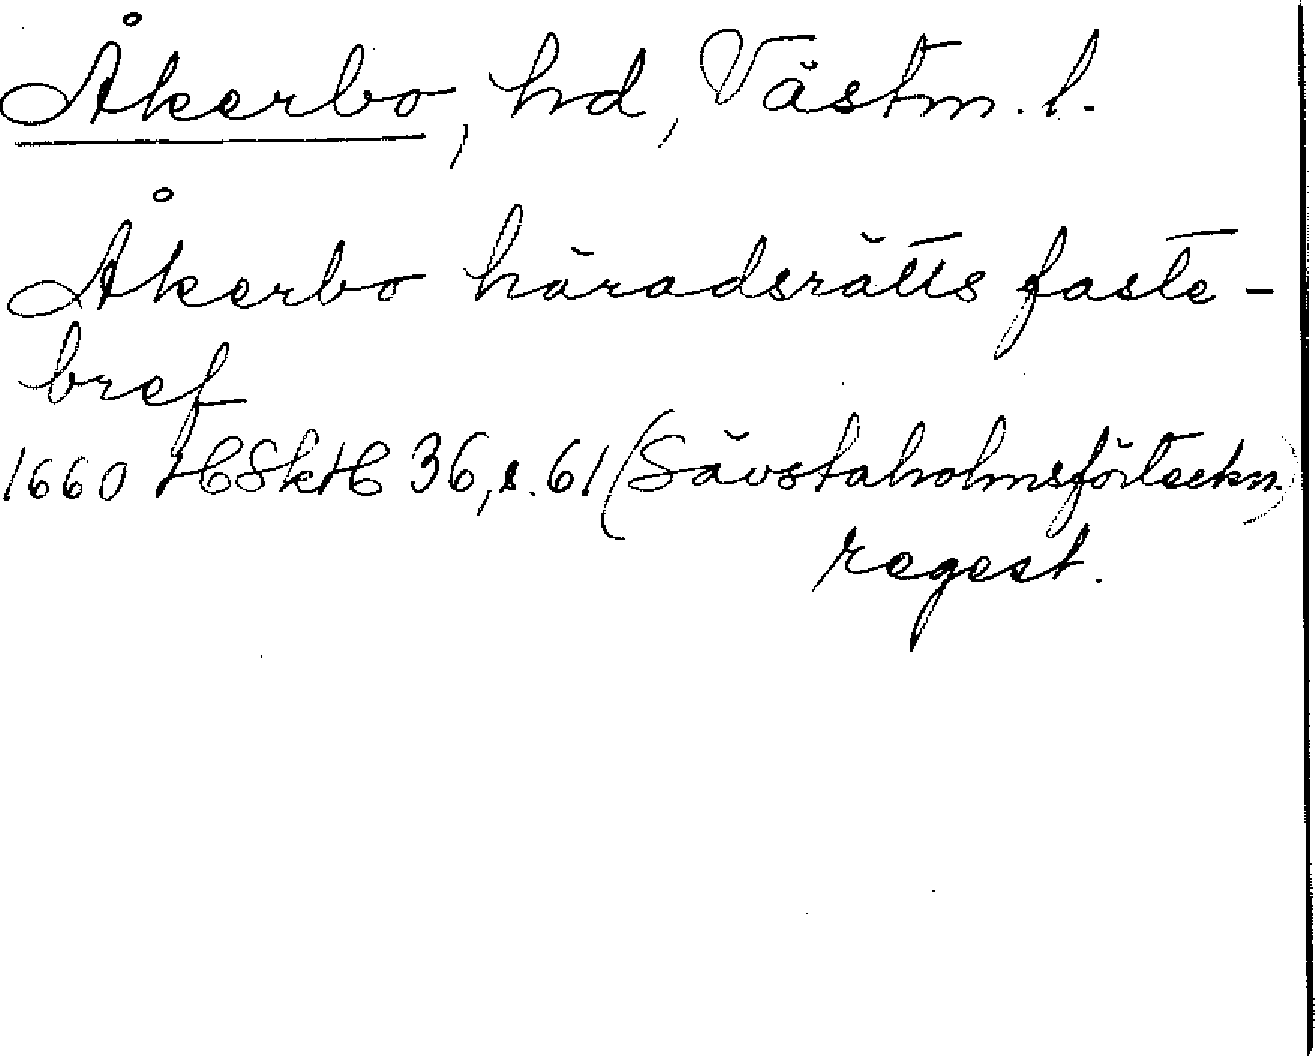 Åkerbo, hd, Västm. l.
Åkerbo häradsrätts faste-
bref
1660 HSkH 36, s. 61 (Sävstaholmsförteckn.)
regest.